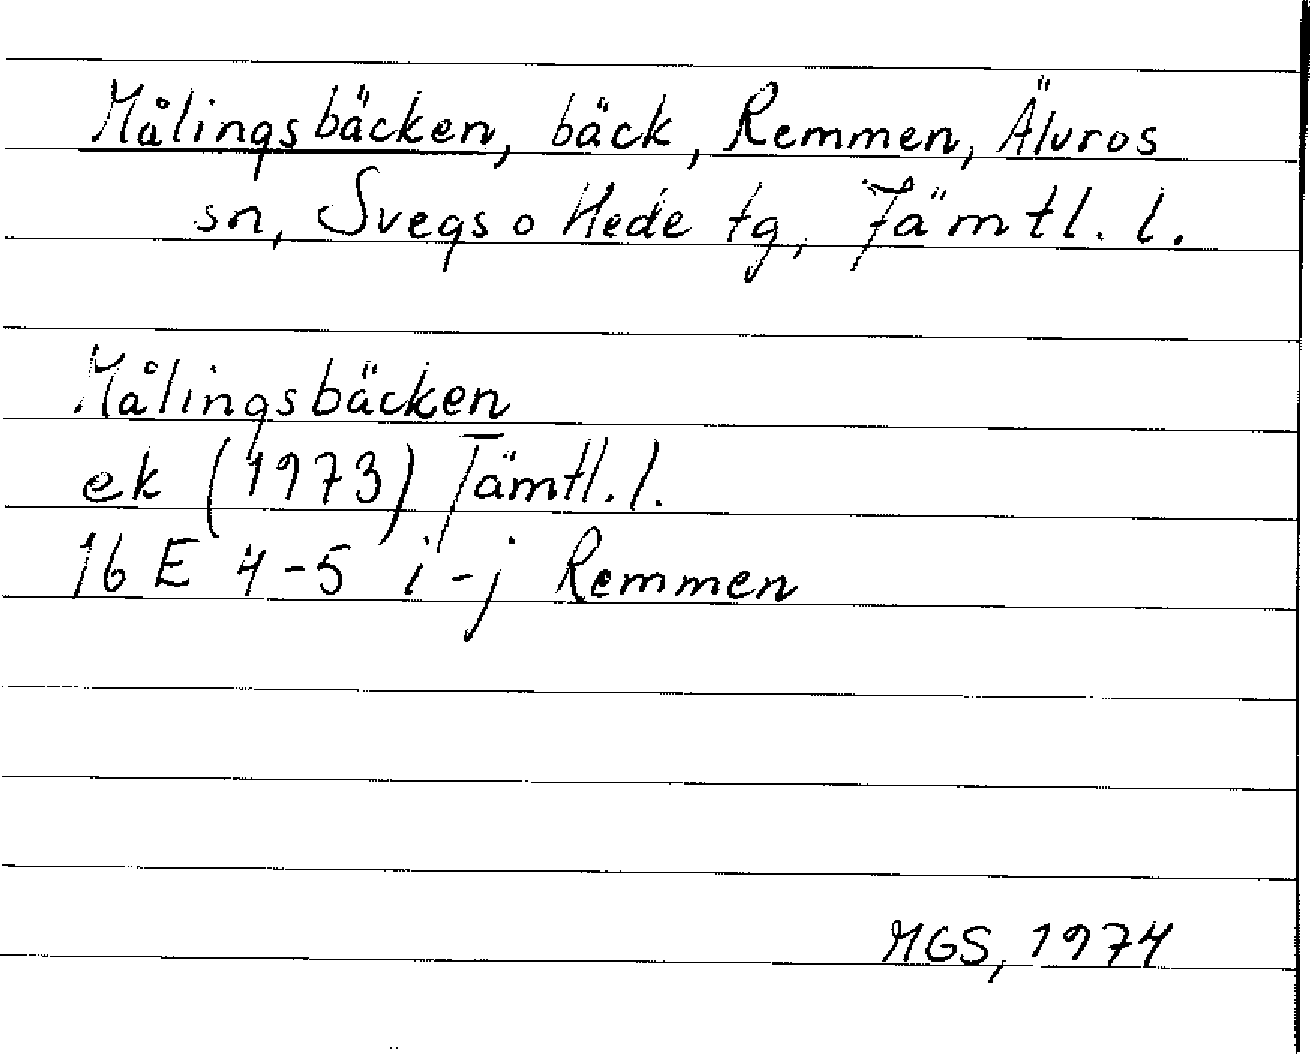 Målingsbäcken, bäck, Remmen, Älvros
sn, Svegs o Hede tg, Jämtl. l.
Målingsbäcken
ek (1973) Jämtl. l.
16 E 4-5 i-j Remmen
MGS, 1974